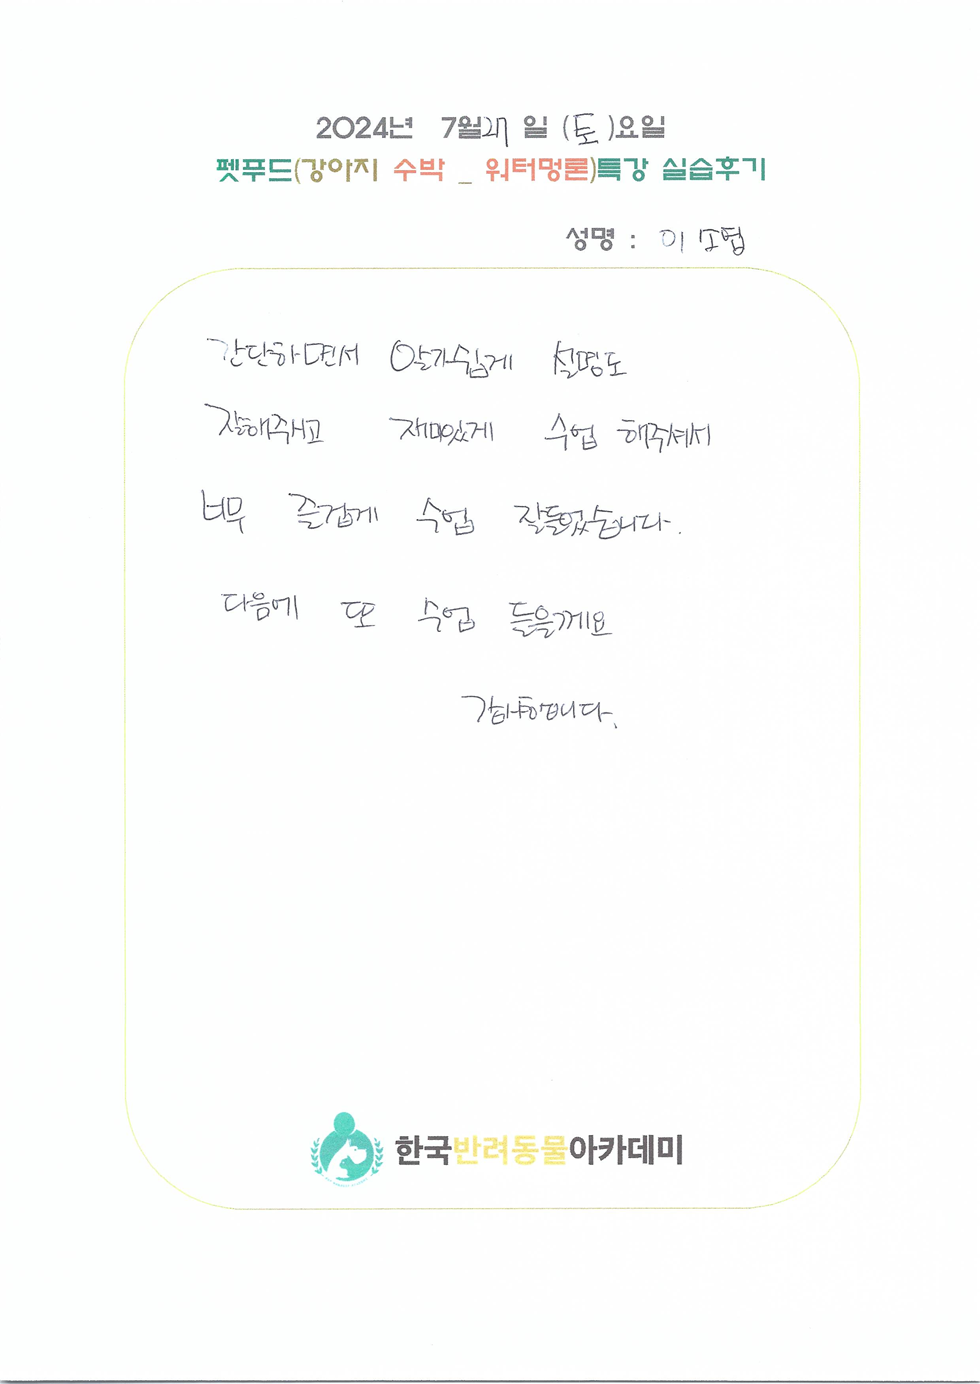 2024년 7월 27 일 (토)요일
펫푸드(강아지 수박 _ 워터멍론)특강 실습후기
성명 : 이소협
간단하면서 알기쉽게 설명도
잘해주시고 재미있게 수업 해주셔서
너무 즐겁게 수업 잘들었습니다.
다음에 또 수업 들을게요
감사합니다.
한국반려동물아카데미